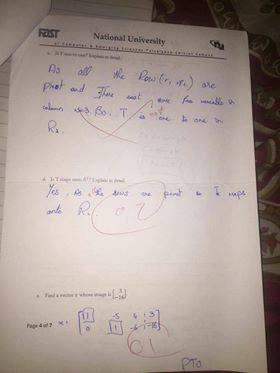 FAST National University
of Computer & Emerging Sciences-Faisalabad Campus
c. Is T one to one? Explain in detail.
As all the Row (r1, r2) are
pivot and There exist one free variable in
column no 3. So, T is not one to one in
R2.
d. Is T maps onto R²? Explain in detail.
Yes, As the rows are pivot so T maps
onto R
02
e. Find a vector x whose image is [3 -16]
x = [1 -5 4 : 3
0 1 -6 : -16]
01
Page 4 of 7
PTO